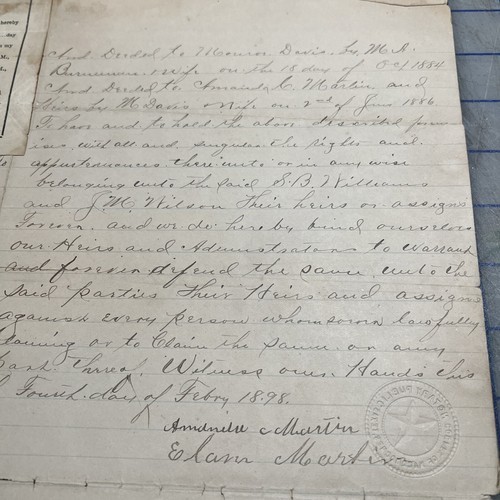 hereby
day
my
M.,
And Deeded to Monroe Davis by M. A.
Wife on the 18 day of Oct 1884
And Deeded to Amanda C. Martin and
Heirs by M. Davis & Wife on 2nd of June 1886
To have and to hold the above described prem
ises, with all and singular the rights and
appurtenances thereunto or in any wise
belonging unto the said S. B. Williams
and J. M. Wilson their heirs or assigns
Forever. and we do hereby bind ourselves
our Heirs and Administrators to Warrant
and forever difend the same unto the
said parties Their Heirs and assigns
against every person whomsoever lawfully
claiming or to Claim the same or any
part thereof. Witness our Hands this
Fourth day of Febry 1898.
Amanda C Martin
Elam Martin